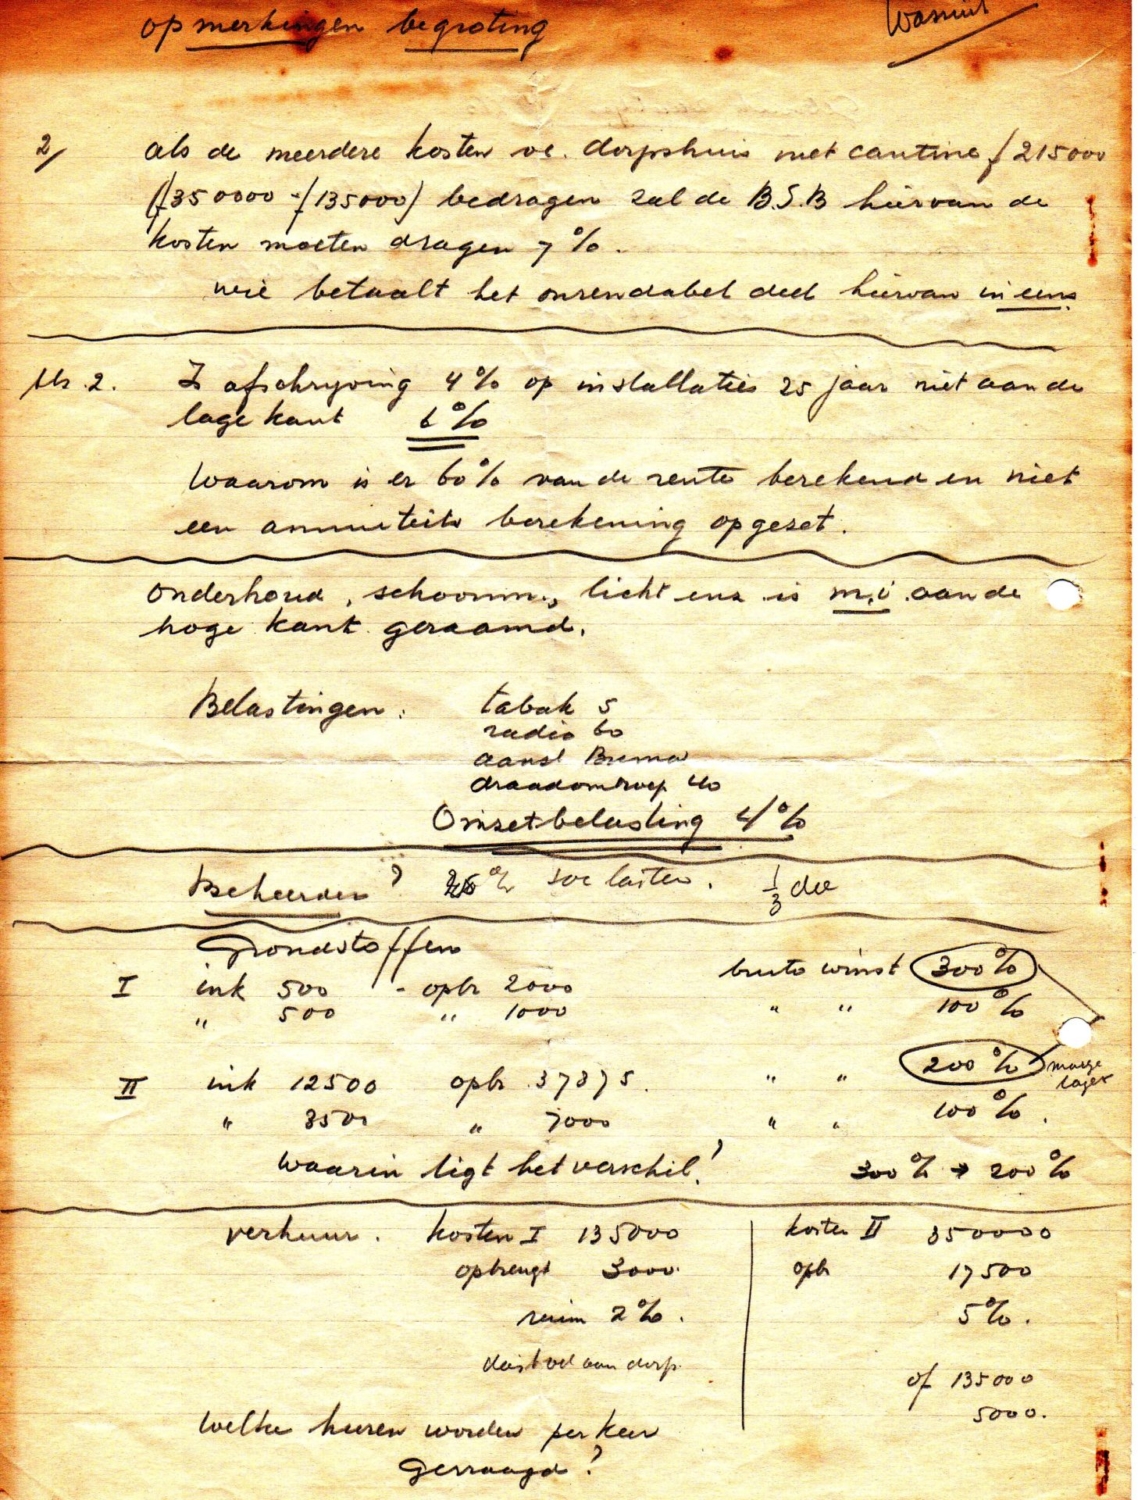 opmerkingen begroting
2/ als de meerdere kosten v. dorpshuis met cantine f 215000
(f 350000 - f 135000) bedragen zal de B.S.B hiervan de
kosten moeten dragen 7%.
wie betaalt het onrendabel deel hiervan in eens.
2. Is afschryving 4% op installaties 25 jaar niet aan de
lage kant 6%
Waarom is er 60% van de rente berekend en niet
een annuiteits berekening opgezet.
Onderhoud, schoonm., licht enz is m.i. aan de
hoge kant geraamd.
Belastingen: tabak 5
radio 60
aansl Buma
draadomroep 40
Omzetbelasting 4%
Beheerder? soc lasten. 1/3 deel
Grondstoffen
I ink 500 - opbr 2000 bruto winst 300%
" 500 " 1000 " " 100%
II ink 12500 opbr 37875. " " 200% marge lager
" 3500 " 7000 " " 100%.
Waarin ligt het verschil? 300% → 200%
verhuur. kosten I 135000 kosten II 350000
opbrengt 3000. opbr 17500
ruim 2%. 5%.
aan dorp. of 135000
5000.
Welke huren worden per keer
gevraagd?